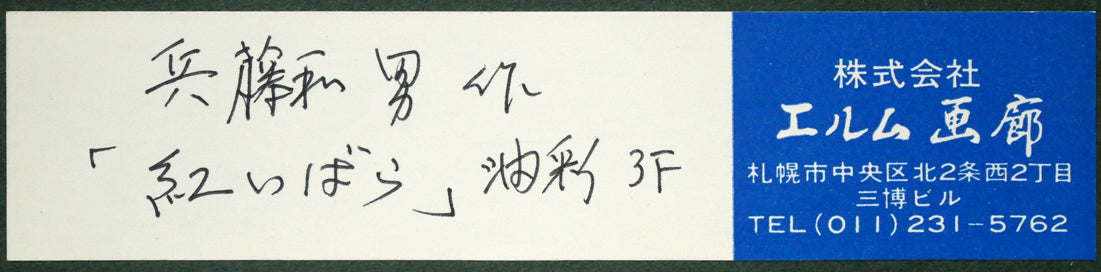 兵藤和男 作
「紅いばら」油彩 3F
株式会社
エルム画廊
札幌市中央区北2条西2丁目
三博ビル
TEL(011)231-5762